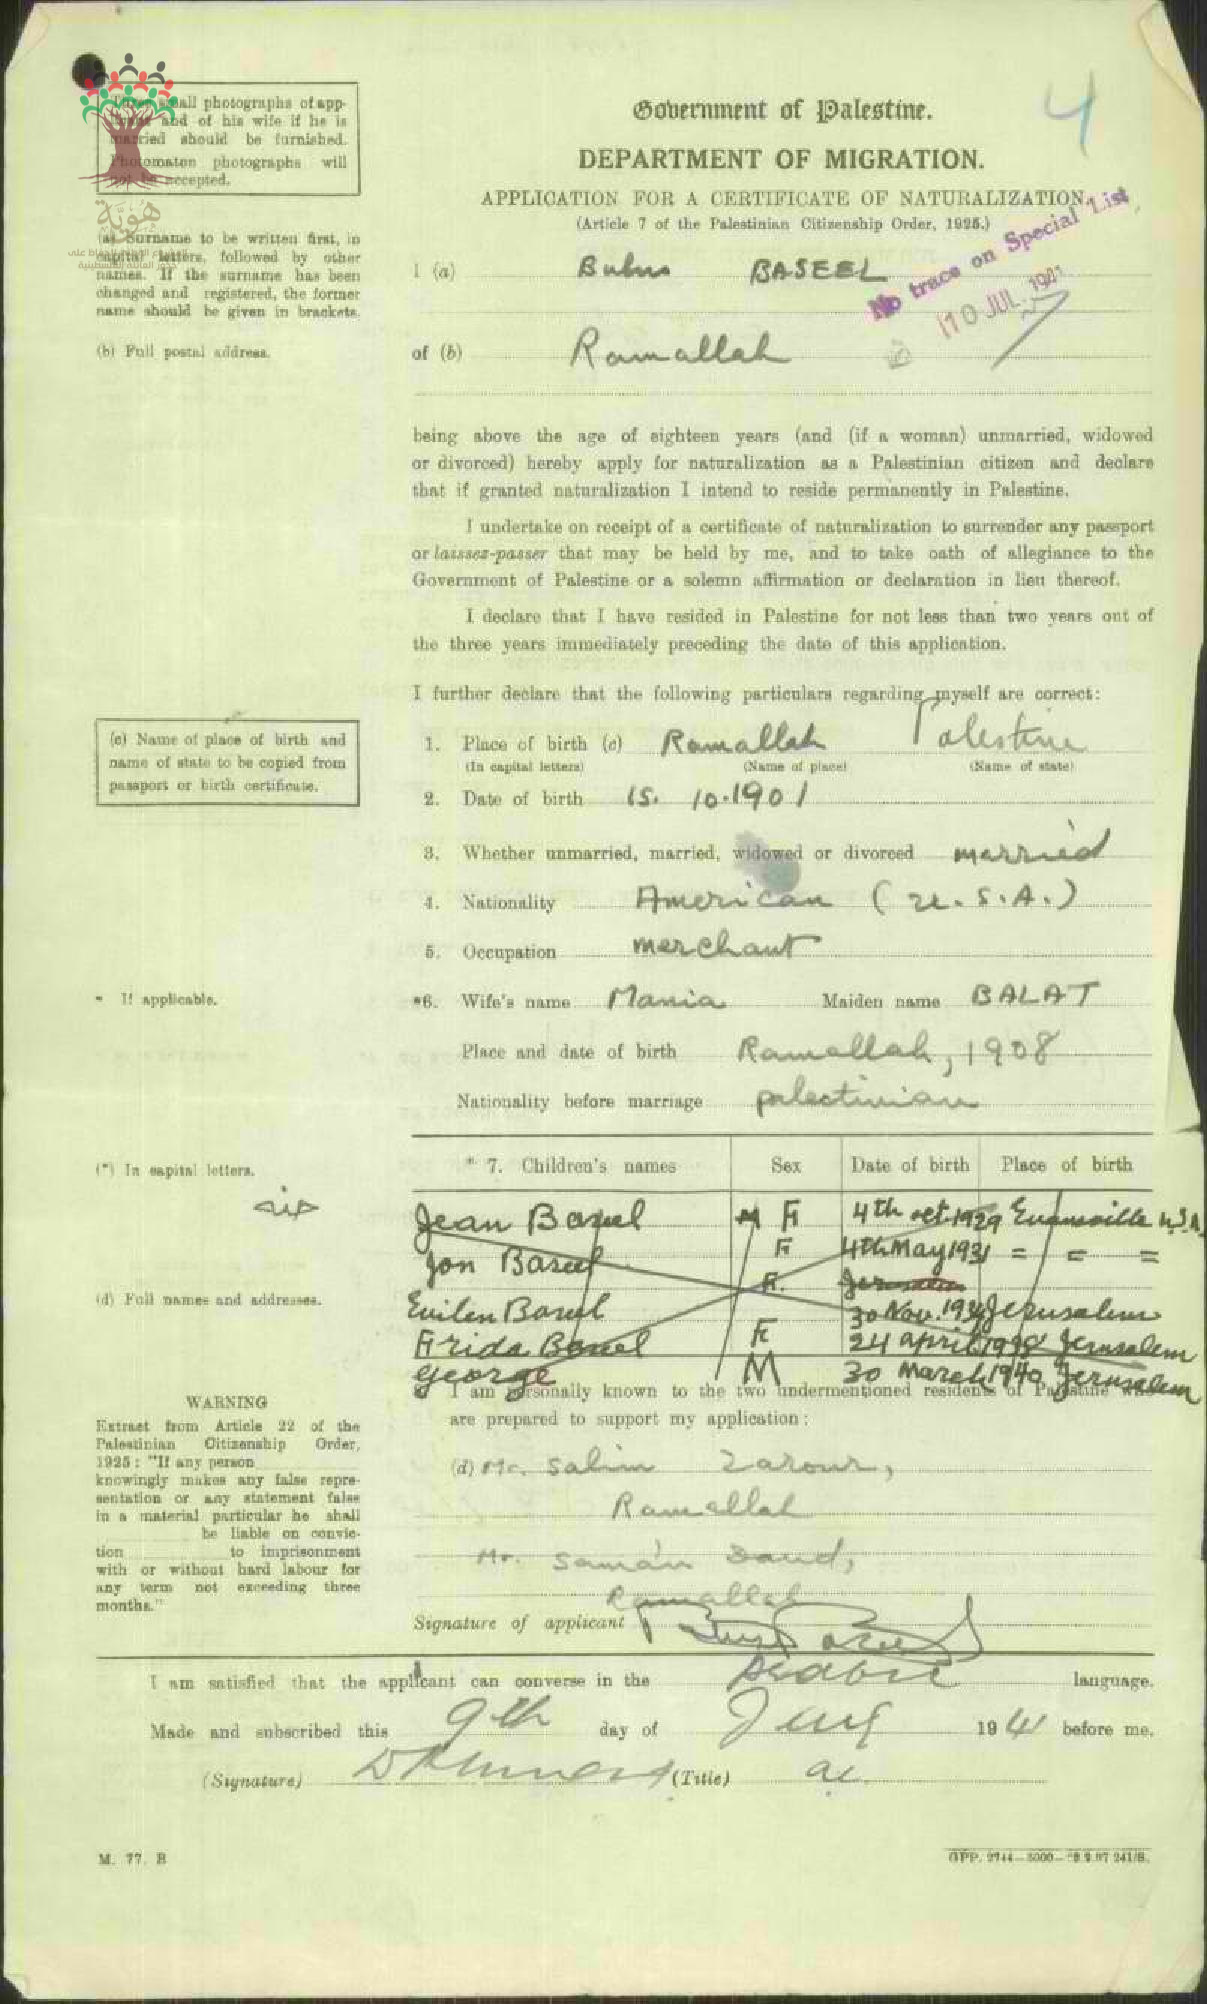 4
Three small photographs of app-
licant and of his wife if he is
married should be furnished.
Photomaton photographs will
not be accepted.
هُويَّة
Government of Palestine.
DEPARTMENT OF MIGRATION.
APPLICATION FOR A CERTIFICATE OF NATURALIZATION.
(Article 7 of the Palestinian Citizenship Order, 1925.)
No trace on Special List
10 JUL. 1941
(a) Surname to be written first, in
capital letters, followed by other
names. If the surname has been
changed and registered, the former
name should be given in brackets.
I (a) BASEEL
(b) Full postal address.
of (b) Ramallah
being above the age of eighteen years (and (if a woman) unmarried, widowed
or divorced) hereby apply for naturalization as a Palestinian citizen and declare
that if granted naturalization I intend to reside permanently in Palestine.
I undertake on receipt of a certificate of naturalization to surrender any passport
or laissez-passer that may be held by me, and to take oath of allegiance to the
Government of Palestine or a solemn affirmation or declaration in lieu thereof.
I declare that I have resided in Palestine for not less than two years out of
the three years immediately preceding the date of this application.
I further declare that the following particulars regarding myself are correct:
(c) Name of place of birth and
name of state to be copied from
passport or birth certificate.
1. Place of birth (c) Ramallah Palestine
(In capital letters) (Name of place) (Name of state)
2. Date of birth 15. 10.1901
3. Whether unmarried, married, widowed or divorced married
4. Nationality American (U.S.A.)
5. Occupation merchant
* If applicable.
*6. Wife's name Maria Maiden name BALAT
Place and date of birth Ramallah, 1908
Nationality before marriage palestinian
(*) In capital letters.
* 7. Children's names Sex Date of birth Place of birth
Jean Baseel F 4th oct. 1929 Evansville U.S.A.
Jon Baseel F 4th May 1931 = = =
F. Jerusalem
(d) Full names and addresses.
Evilen Baseel 30 Nov. Jerusalem
Frida Baseel F 24 april 1938 Jerusalem
George M 30 March 1940 Jerusalem
I am personally known to the two undermentioned residents of Palestine who
are prepared to support my application:
WARNING
Extract from Article 22 of the
Palestinian Citizenship Order,
1925: "If any person
knowingly makes any false repre-
sentation or any statement false
in a material particular he shall
be liable on convic-
tion to imprisonment
with or without hard labour for
any term not exceeding three
months."
(d) Mr. Salim Zarour,
Ramallah
Mr. Saman Daud,
Ramallah
Signature of applicant
I am satisfied that the applicant can converse in the Arabic language.
Made and subscribed this 9th day of July 1941 before me.
(Signature) (Title)
M. 77. B